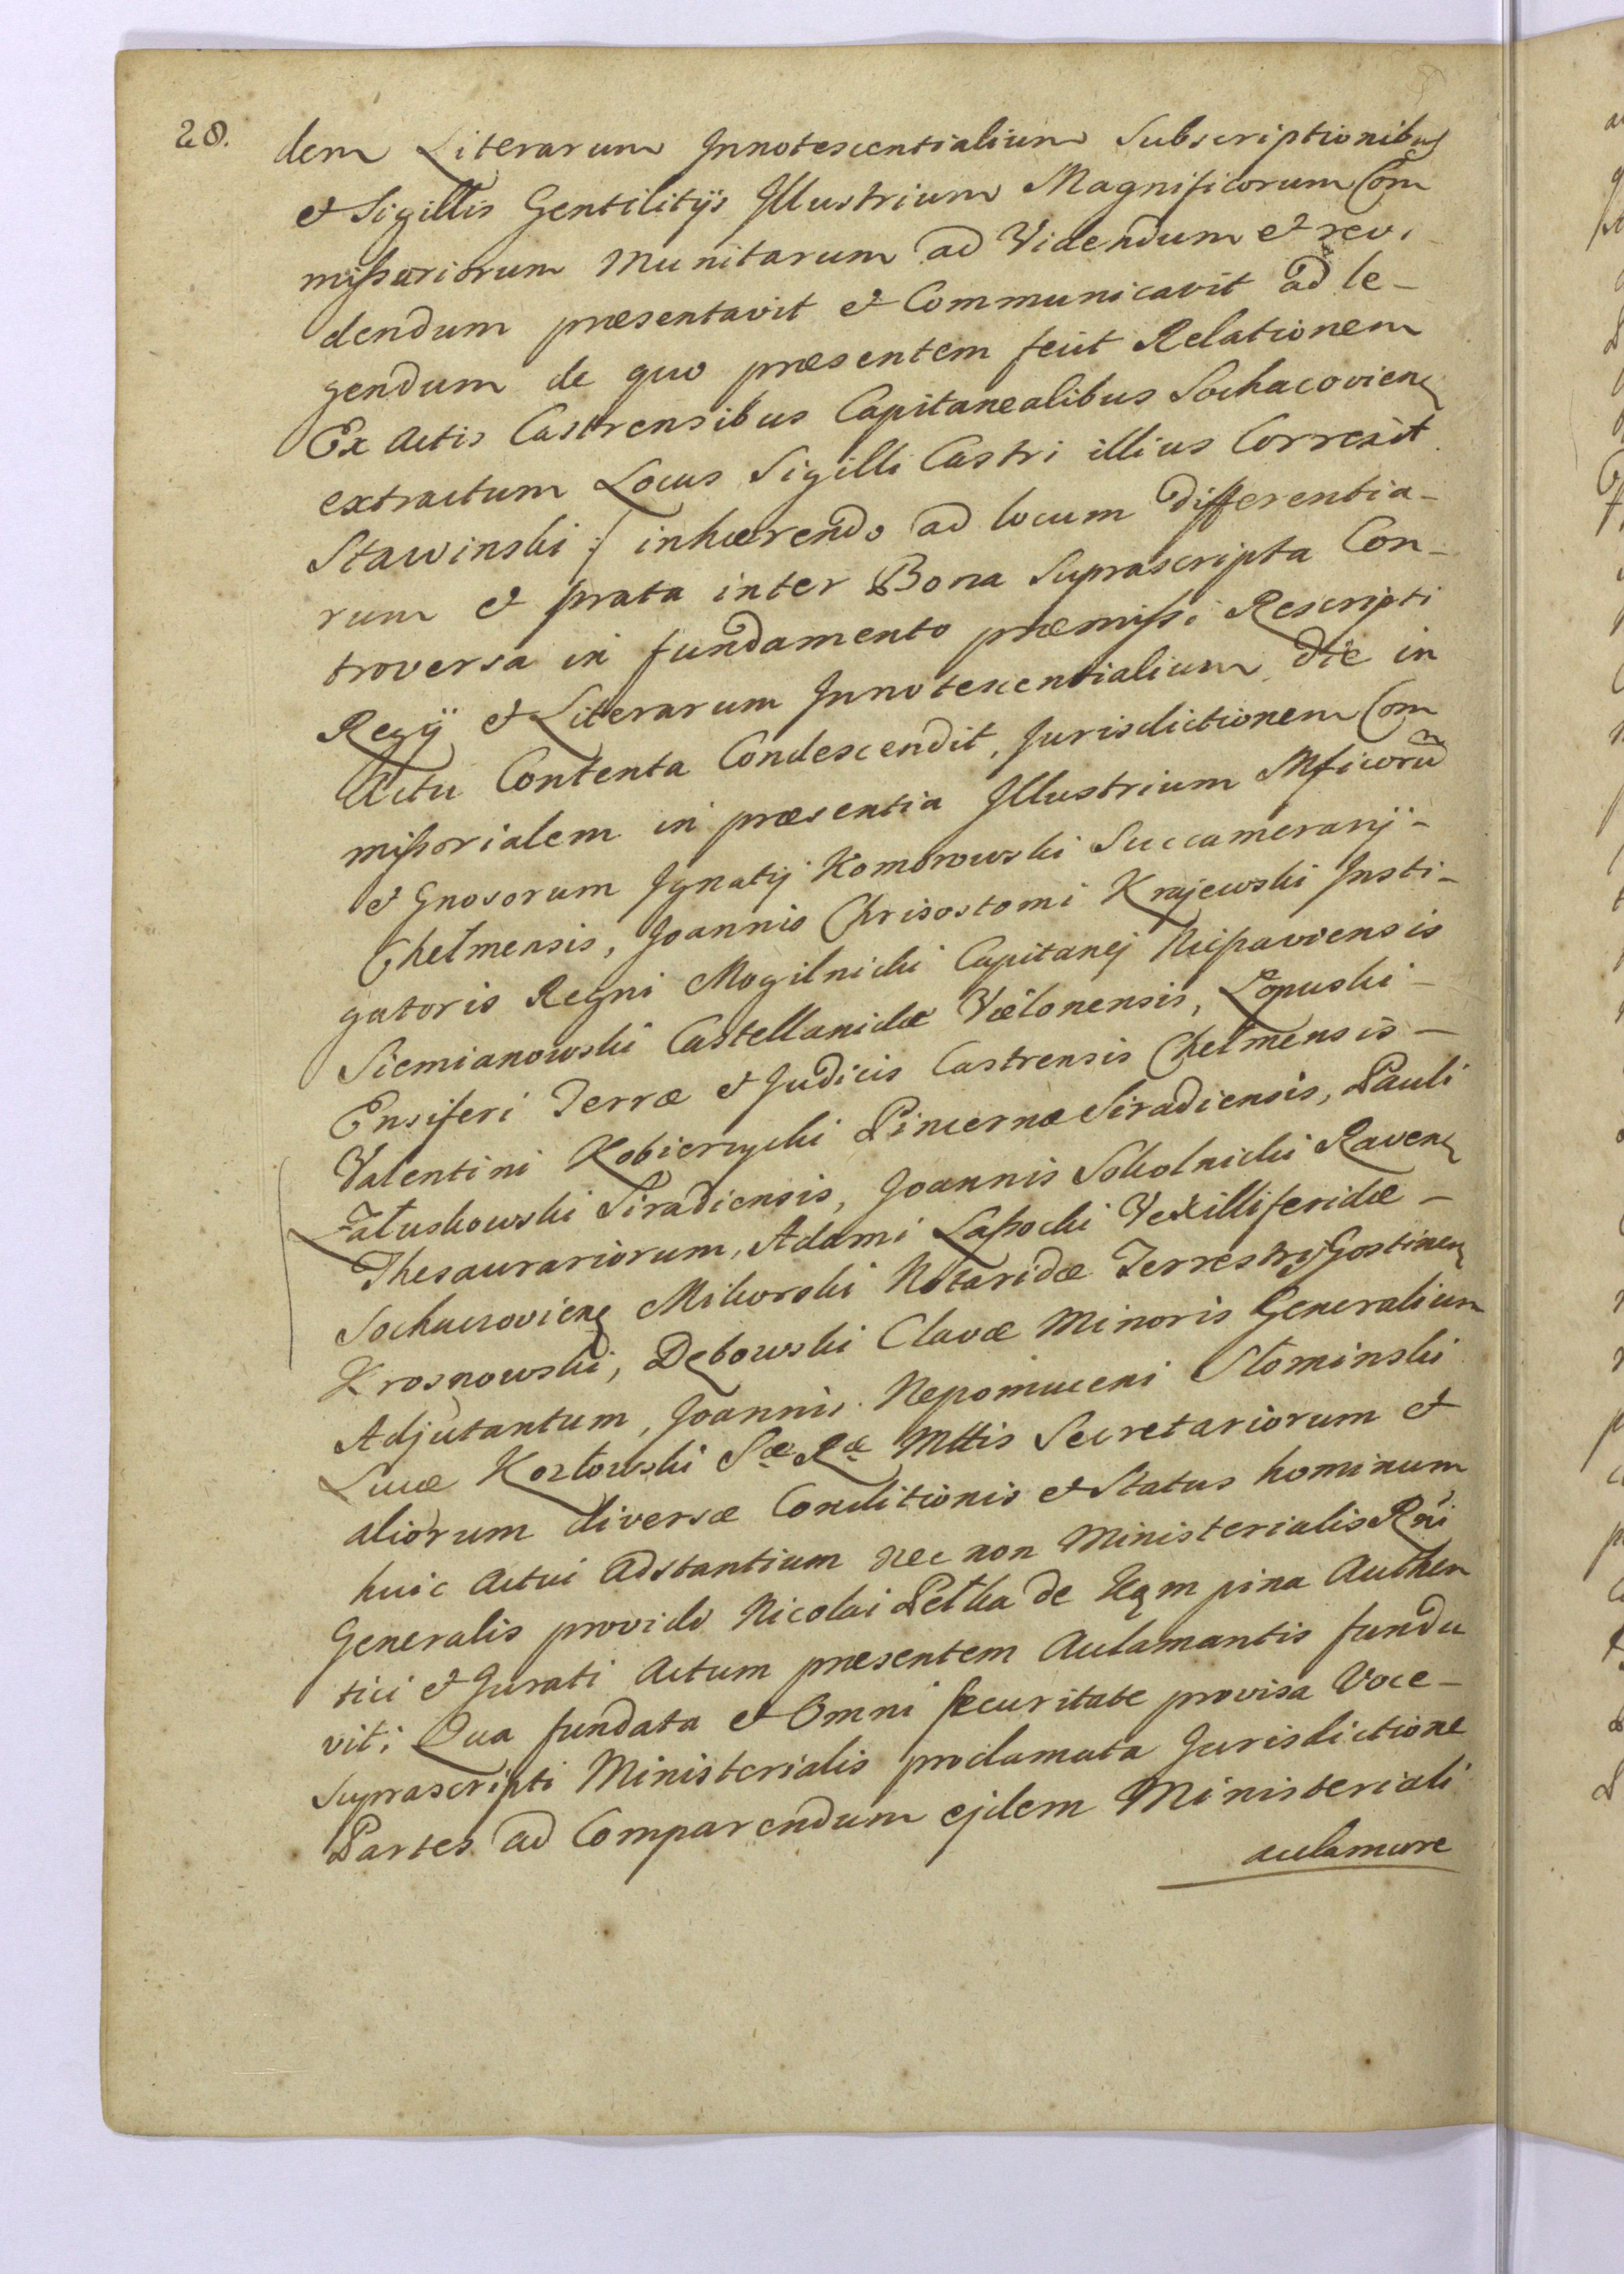 28.
dem Literarum Innotescentialium Subscriptionibus
et Sigillis Gentilitijs Illustrium Magnificorum Com
missariorum munitarum ad Videndum et revi
dendum præsentavit et Communicavit ad le-
gendum de quo præsentem fecit Relationem
Ex Actis Castrensibus Capitanealibus Sochacovien
extractum Locus Sigilli Castri illius Correxit
Stawinski :/ inhærendo ad locum differentia-
rum et prata inter Bona Suprascripta Con-
troversa in fundamento præmissi Rescripti
Regij et Literarum Innotescentialium die in
Actu Contenta Condescendit, Jurisdictionem Com
missorialem in præsentia Illustrium Mficorum
et Gnosorum Ignatij Komorowski Succamerarij-
Chelmensis, Joannis Chrisostomi Krajewski Insti-
gatoris Regni Mogilnicki Capitanei Niepaviensis
Siemianowski Castellanidæ Vielonensis, Łopuski-
Ensiferi Terræ et Judicis Castrensis Chelmensis-
Valentini Kobierzycki Pincernæ Siradiensis, Pauli
Załuskowski Siradiensis, Joannis Sokolnicki Raven
Thesaurariorum, Adami Lasocki Vexilliferidæ-
Sochacovien Mikorski Notaridæ Terrestrij Gostinen
Krosnowski, Dębowski Clavæ Minoris Generalium
Adjutantum, Joannis Nepomuceni Słominski
Lucæ Kozłowski Sæ Ræ Mttis Secretariorum et
aliorum diversæ Conditionis et Status hominum
huic Actui adstantium nec non Ministerialis Rni
Generalis providi Nicolai Pełka de Kąmpina Authen
tici et Jurati Actum præsentem Aclamantis funda
vit; Qua fundata et Omni securitate provisa Voce-
Suprascripti Ministerialis proclamata Jurisdictione
Partes ad Comparendum ejdem Ministeriali
aclamare